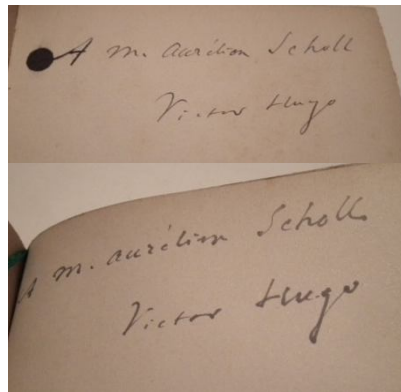 A m. Aurélien Scholl
Victor Hugo
A m. aurélien Scholl
Victor Hugo